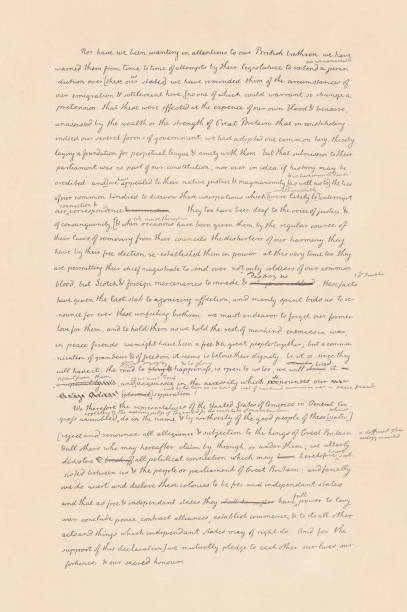 Nor have we been wanting in attentions to our British brethren. we have
warned them from time to time of attempts by their legislature to extend a juris-
diction over [these our states] we have reminded them of the circumstances of
our emigration & settlement here, [no one of which could warrant so strange a
pretension: that these were effected at the expence of our own blood & treasure,
unassisted by the wealth or the strength of Great Britain: that in constituting
indeed our several forms of government, we had adopted one common king, thereby
laying a foundation for perpetual league & amity with them: but that submission to their
parliament was no part of our constitution, nor ever in idea if history may be
credited: and] we appealed to their native justice & magnanimity [as well as to] the ties
of our common kindred to disavow these usurpations which [were likely to] interrupt
connection &
our correspondence they too have been deaf to the voice of justice &
of consanguinity [& when occasions have been given them, by the regular course of
their laws of removing from their councils the disturbers of our harmony, they
have by their free election re-established them in power. at this very time too they
are permitting their chief magistrate to send over not only soldiers of our common
blood, but Scotch & foreign mercenaries to invade & destroy us these facts
have given the last stab to agonizing affection, and manly spirit bids us to re-
nounce for ever these unfeeling brethren. we must endeavor to forget our former
love for them, and to hold them as we hold the rest of mankind enemies in war,
in peace friends. we might have been a free & a great people together; but a commu-
nication of grandeur & of freedom it seems is below their dignity. be it so, since they
will have it: the road to happiness, is open to us too; we will it
and acquiesce in the necessity which
separation!
We therefore the representatives of the United States of America in General Con-
gress assembled, do in the name & by authority of the good people of these [states]
[reject and renounce all allegiance & subjection to the kings of Great Britain
& all others who may hereafter claim by, through, or under them; we utterly
dissolve all political connection which may heretofore have sub-
sisted between us & the people or parliament of Great Britain; and finally
we do assert and declare these colonies to be free and independant states
and that as free & independant states they have full power to levy
war conclude peace, contract alliances, establish commerce, & to do all other
acts and things which independant states may of right do. And for the
support of this declaration] we mutually pledge to each other our lives, our
fortunes, & our sacred honour.